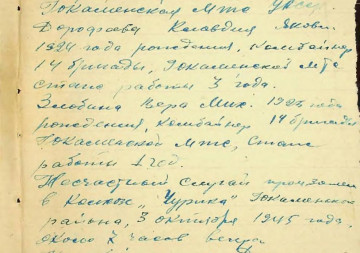 Юкаменская Мтс
Дорофеева Клавдия Яковл.
1924 года рождения, Комбайнер
14 бригады, Юкаменской Мтс
стаж работы 3 года.
Злобина Вера Мих. 1925 года
рождения, комбайнер 14 бригады
Юкаменской Мтс, стаж
работы 1 год.
Несчастный случай произошел
в колхозе „Чурина" Юкаменского
района, 3 октября 1945 года
около 7 часов вечера